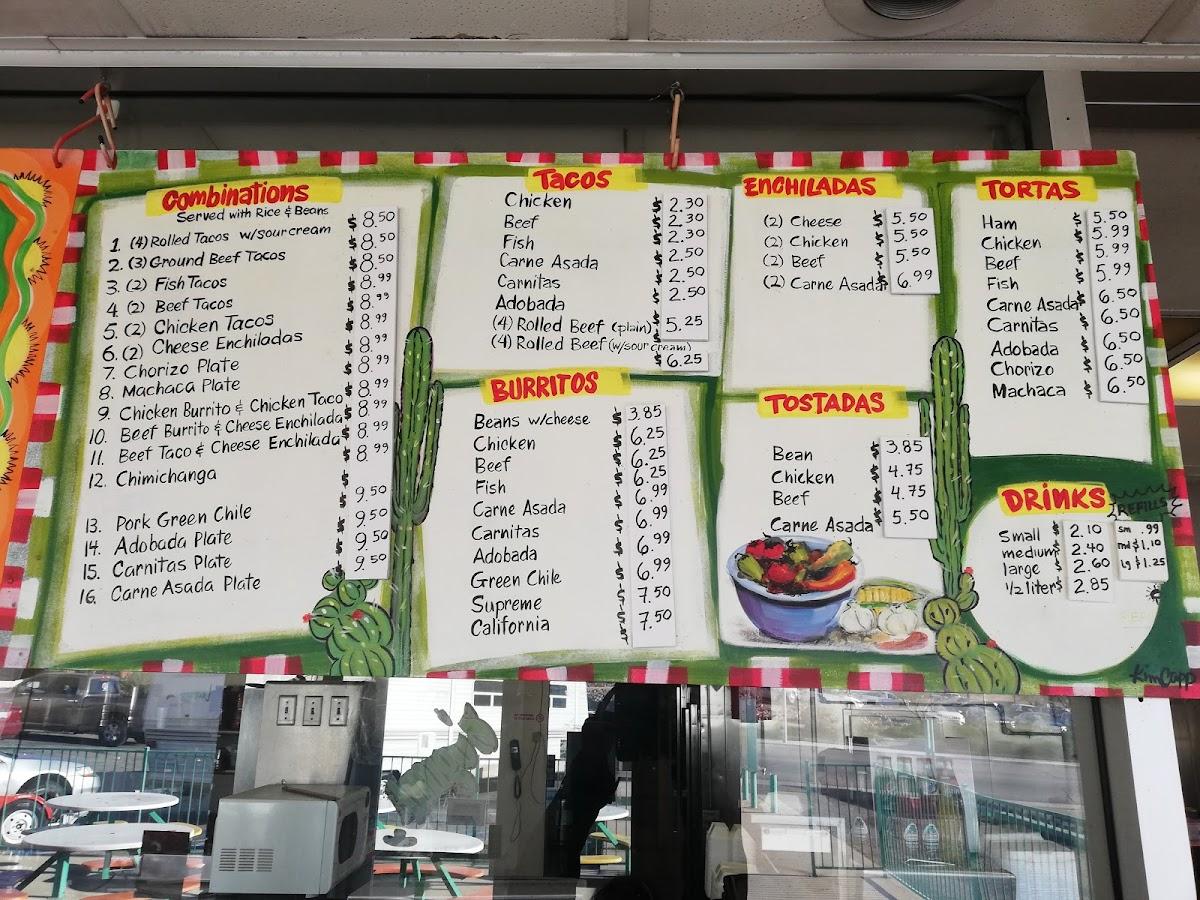 Combinations
Served with Rice & Beans
1. (4) Rolled Tacos w/sour cream $ 8.50
2. (3) Ground Beef Tacos $ 8.50
3. (2) Fish Tacos $ 8.50
4. (2) Beef Tacos $ 8.99
5. (2) Chicken Tacos $ 8.99
6. (2) Cheese Enchiladas $ 8.99
7. Chorizo Plate $ 8.99
8. Machaca Plate $ 8.99
9. Chicken Burrito & Chicken Taco $ 8.99
10. Beef Burrito & Cheese Enchilada $ 8.99
11. Beef Taco & Cheese Enchilada $ 8.99
12. Chimichanga $ 8.99
13. Pork Green Chile $ 9.50
14. Adobada Plate $ 9.50
15. Carnitas Plate $ 9.50
16. Carne Asada Plate $ 9.50
Tacos
Chicken $ 2.30
Beef $ 2.30
Fish $ 2.30
Carne Asada $ 2.50
Carnitas $ 2.50
Adobada $ 2.50
(4) Rolled Beef (plain) $ 5.25
(4) Rolled Beef (w/sour cream) $ 6.25
BURRITOS
Beans w/cheese $ 3.85
Chicken $ 6.25
Beef $ 6.25
Fish $ 6.25
Carne Asada $ 6.99
Carnitas $ 6.99
Adobada $ 6.99
Green Chile $ 6.99
Supreme $ 7.50
California $ 7.50
ENCHILADAS
(2) Cheese $ 5.50
(2) Chicken $ 5.50
(2) Beef $ 5.50
(2) Carne Asada $ 6.99
TOSTADAS
Bean $ 3.85
Chicken $ 4.75
Beef $ 4.75
Carne Asada $ 5.50
TORTAS
Ham $ 5.50
Chicken $ 5.99
Beef $ 5.99
Fish $ 5.99
Carne Asada $ 6.50
Carnitas $ 6.50
Adobada $ 6.50
Chorizo $ 6.50
Machaca $ 6.50
DRINKS
REFILLS
Small $ 2.10
medium $ 2.40
large $ 2.60
1/2 liter $ 2.85
sm .99
md $1.10
lg $1.25
Kim Capp